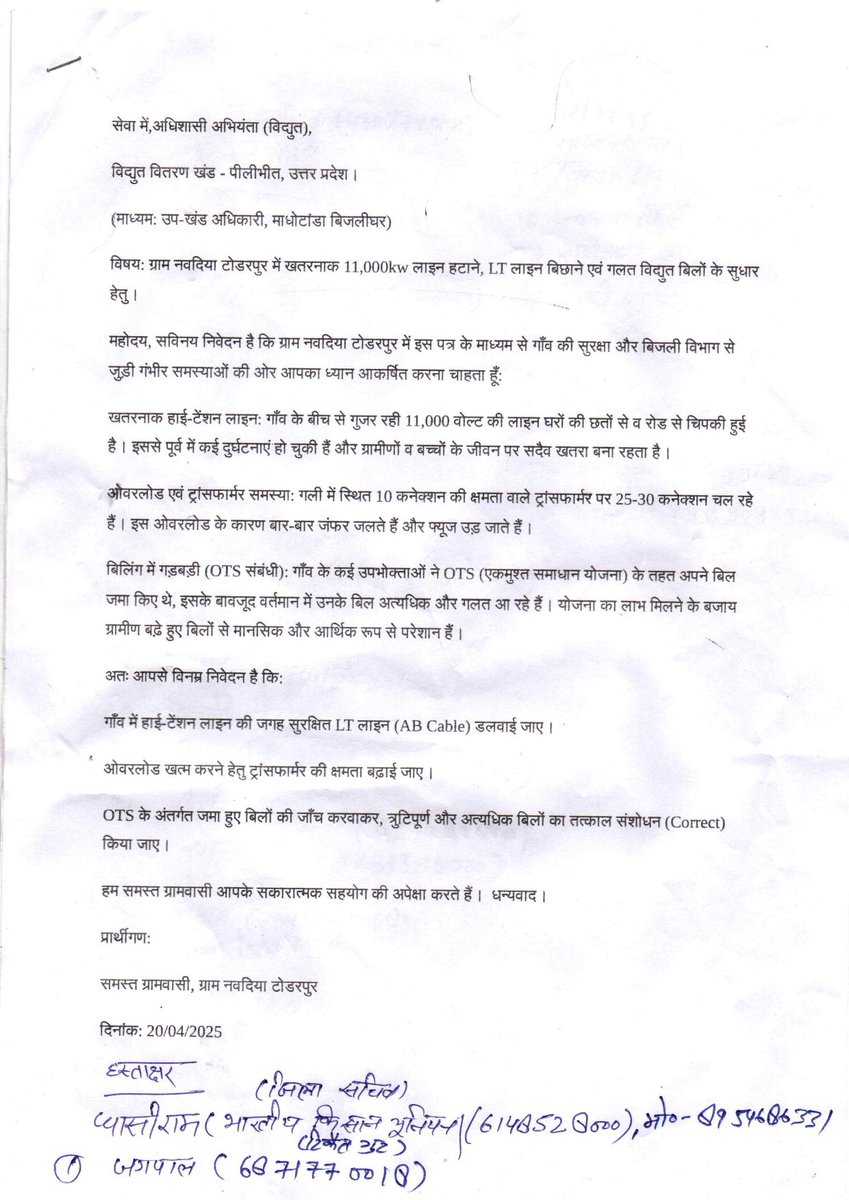 सेवा में,अधिशासी अभियंता (विद्युत),
विद्युत वितरण खंड - पीलीभीत, उत्तर प्रदेश।
(माध्यम: उप-खंड अधिकारी, माधोटांडा बिजलीघर)
विषय: ग्राम नवदिया टोडरपुर में खतरनाक 11,000kw लाइन हटाने, LT लाइन बिछाने एवं गलत विद्युत बिलों के सुधार
हेतु।
महोदय, सविनय निवेदन है कि ग्राम नवदिया टोडरपुर में इस पत्र के माध्यम से गाँव की सुरक्षा और बिजली विभाग से
जुड़ी गंभीर समस्याओं की ओर आपका ध्यान आकर्षित करना चाहता हूँ:
खतरनाक हाई-टेंशन लाइन: गाँव के बीच से गुजर रही 11,000 वोल्ट की लाइन घरों की छतों से व रोड से चिपकी हुई
है। इससे पूर्व में कई दुर्घटनाएं हो चुकी हैं और ग्रामीणों व बच्चों के जीवन पर सदैव खतरा बना रहता है।
ओवरलोड एवं ट्रांसफार्मर समस्या: गली में स्थित 10 कनेक्शन की क्षमता वाले ट्रांसफार्मर पर 25-30 कनेक्शन चल रहे
हैं। इस ओवरलोड के कारण बार-बार जंफर जलते हैं और फ्यूज उड़ जाते हैं।
बिलिंग में गड़बड़ी (OTS संबंधी): गाँव के कई उपभोक्ताओं ने OTS (एकमुश्त समाधान योजना) के तहत अपने बिल
जमा किए थे, इसके बावजूद वर्तमान में उनके बिल अत्यधिक और गलत आ रहे हैं। योजना का लाभ मिलने के बजाय
ग्रामीण बढ़े हुए बिलों से मानसिक और आर्थिक रूप से परेशान हैं।
अतः आपसे विनम्र निवेदन है कि:
गाँव में हाई-टेंशन लाइन की जगह सुरक्षित LT लाइन (AB Cable) डलवाई जाए।
ओवरलोड खत्म करने हेतु ट्रांसफार्मर की क्षमता बढ़ाई जाए।
OTS के अंतर्गत जमा हुए बिलों की जाँच करवाकर, त्रुटिपूर्ण और अत्यधिक बिलों का तत्काल संशोधन (Correct)
किया जाए।
हम समस्त ग्रामवासी आपके सकारात्मक सहयोग की अपेक्षा करते हैं। धन्यवाद।
प्रार्थीगण:
समस्त ग्रामवासी, ग्राम नवदिया टोडरपुर
दिनांक: 20/04/2025
हस्ताक्षर
(जिला सचिव)
प्यासीराम (भारतीय किसान यूनियन) (6148528000), मो०- 8954686331
(टिकैत गुट)
① जगपाल (6871770018)